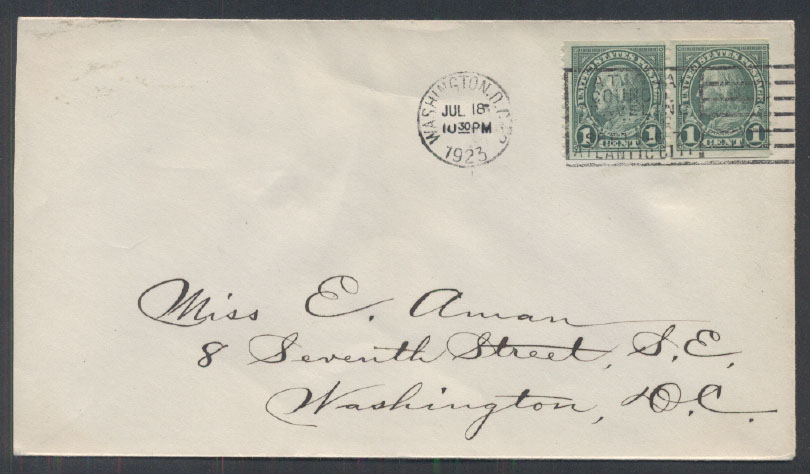 WASHINGTON, D.C.
JUL 18
10 30 PM
1923
ATLANTIC CITY
UNITED STATES POSTAGE
1 1
CENT
UNITED STATES POSTAGE
1 1
CENT
Miss E. Aman
8 Seventh Street, S.E.
Washington, D.C.